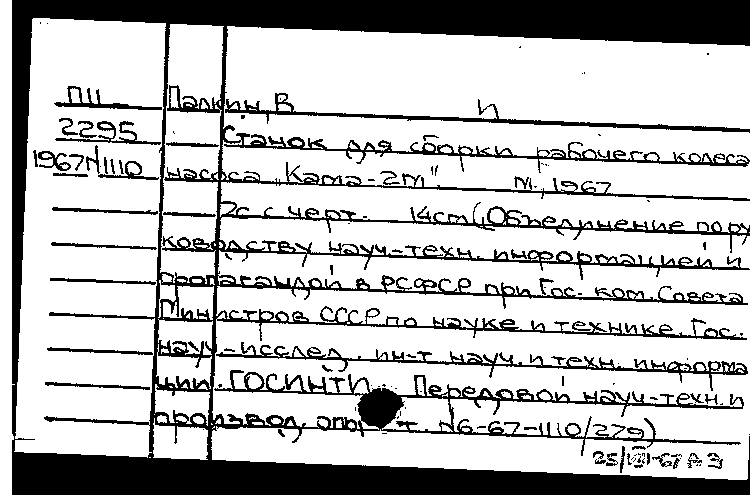 ПШ Палкин, В. И
2295 Станок для сборки рабочего колеса
1967№1110 насоса "Кама-2М". М., 1967
2с с черт. 14см (Объединение по ру
ководству науч-техн. информацией и
пропагандой в РСФСР при Гос. ком. Совета
Министров СССР по науке и технике. Гос.
науч-исслед. ин-т науч. и техн. информа
ции. ГОСИНТИ. Передовой науч-техн. и
производ. т. №6-67-1110/279)
25/VIII-67